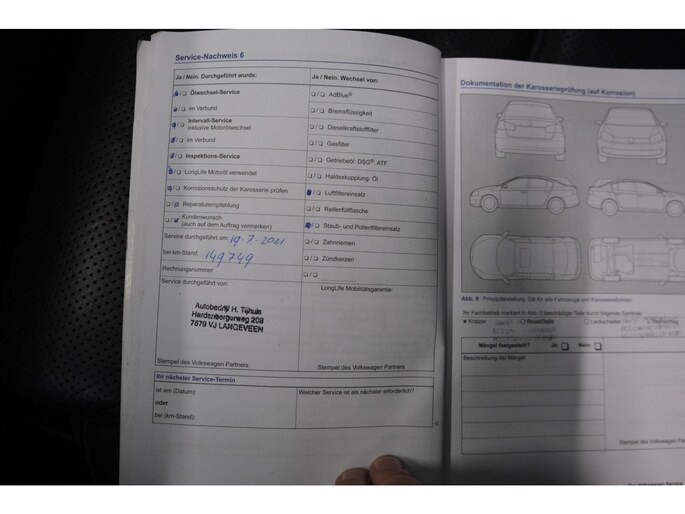 Service-Nachweis 6
Ja / Nein. Durchgeführt wurde:
Ölwechsel-Service
im Verbund
Intervall-Service
inklusive Motorölwechsel
im Verbund
Inspektions-Service
LongLife Motoröl verwendet
Korrosionsschutz der Karosserie prüfen
Reparaturempfehlung
Kundenwunsch
(auch auf dem Auftrag vermerken)
Service durchgeführt am: 19-7-2021
bei km-Stand: 149749
Rechnungsnummer:
Service durchgeführt von:
Autobedrijf H. Tijhuis
Hardenbergerweg 208
7679 VJ LANGEVEEN
Stempel des Volkswagen Partners
Ja / Nein. Wechsel von:
AdBlue®
Bremsflüssigkeit
Dieselkraftstofffilter
Gasfilter
Getriebeöl: DSG®, ATF
Haldexkupplung: Öl
Luftfiltereinsatz
Reifenfüllflasche
Staub- und Pollenfiltereinsatz
Zahnriemen
Zündkerzen
LongLife Mobilitätsgarantie:
Stempel des Volkswagen Partners
Ihr nächster Service-Termin
ist am (Datum):
oder
bei (km-Stand):
Welcher Service ist als nächster erforderlich?
Dokumentation der Karosserieprüfung (auf Korrosion)
Abb. 9 Prinzipdarstellung: Gilt für alle Fahrzeuge und Karosserieformen.
Ihr Fachbetrieb markiert in Abb. 9 beschädigte Teile durch folgende Symbole:
Kratzer
Lackschaden
Mängel festgestellt? Ja: Nein:
Beschreibung der Mängel:
Stempel des Volkswagen